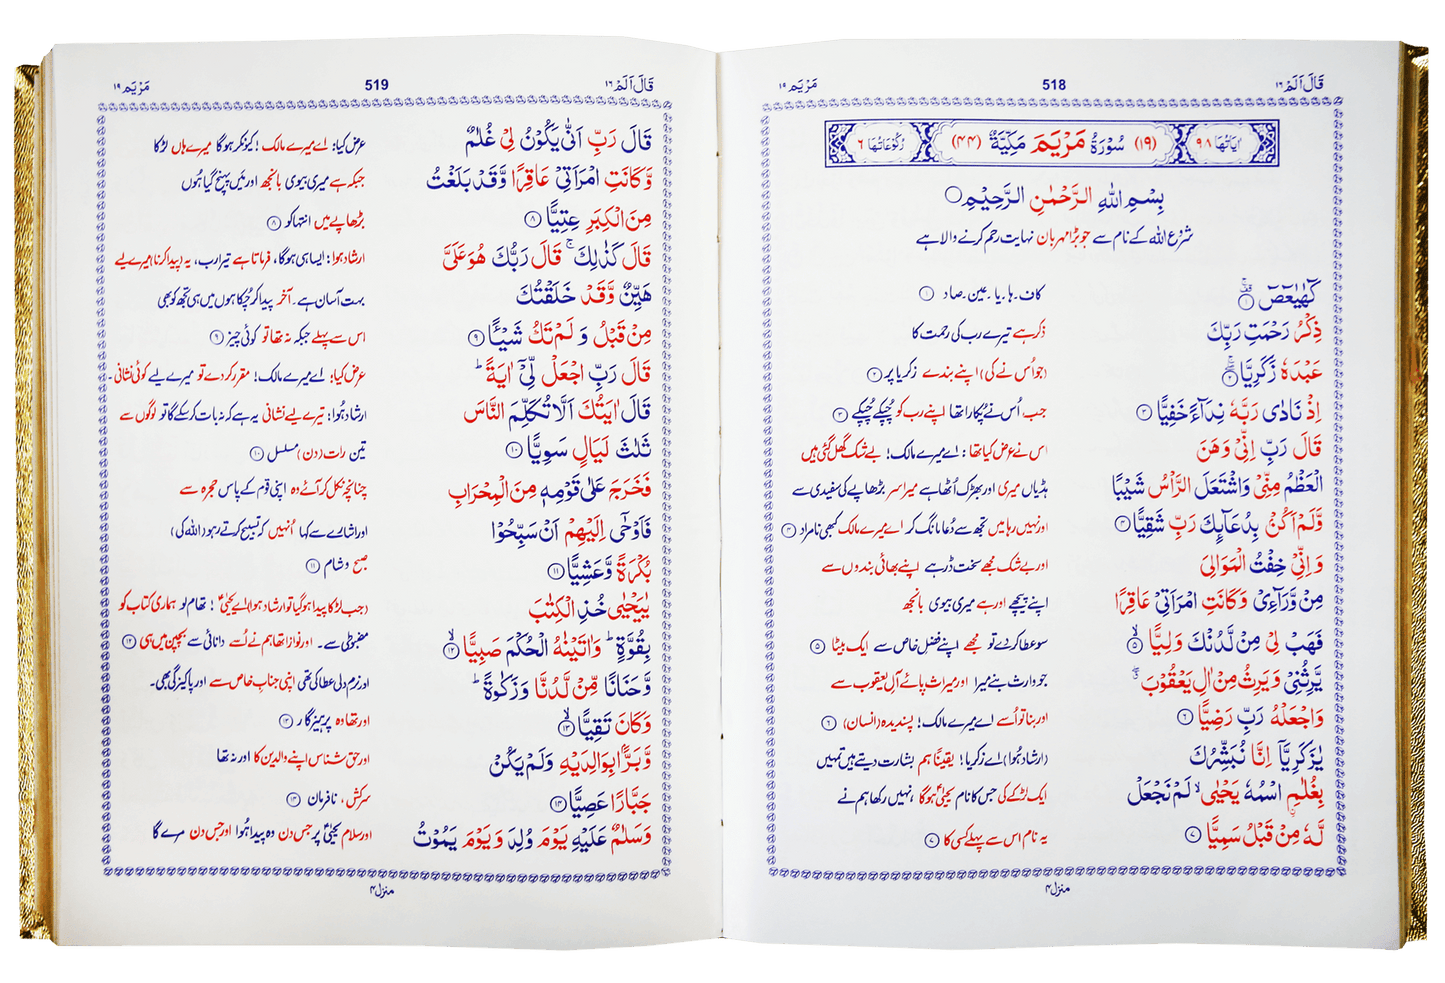 قَالَ اَلَمْ ١٦
518
مَرْيَم ١٩
اٰيَاتُهَا ٩٨
(١٩) سُوْرَةُ مَرْيَمَ مَكِّيَّةٌ (٤٤)
رُكُوْعَاتُهَا ٦
بِسْمِ اللّٰهِ الرَّحْمٰنِ الرَّحِيْمِ
شرُوع اللہ کے نام سے جو بڑا مہربان نہایت رحم کرنے والا ہے
كٓهٰيٰعٓصٓ ۚ ١ کاف۔ ہا۔ یا۔ عین۔ صاد ١
ذِكْرُ رَحْمَتِ رَبِّكَ ذکر ہے تیرے رب کی رحمت کا
عَبْدَهٗ زَكَرِيَّا ۚ ٢ (جو اُس نے کی) اپنے بندے زکریا پر ٢
اِذْ نَادٰى رَبَّهٗ نِدَآءً خَفِيًّا ٣ جب اُس نے پکارا تھا اپنے رب کو چُپکے چُپکے ٣
قَالَ رَبِّ اِنِّىْ وَهَنَ اس نے عرض کیا تھا: اے میرے مالک! بے شک گھُل گئی ہیں
الْعَظْمُ مِنِّىْ وَاشْتَعَلَ الرَّاْسُ شَيْبًا ہڈیاں میری اور بھڑک اُٹھا ہے میرا سر بڑھاپے کی سفیدی سے
وَّلَمْ اَكُنْۢ بِدُعَآئِكَ رَبِّ شَقِيًّا ٤ اور نہیں رہا میں تجھ سے دُعا مانگ کر اے میرے مالک کبھی نامراد ٤
وَ اِنِّىْ خِفْتُ الْمَوَالِىَ اور بے شک مجھے سخت ڈر ہے اپنے بھائی بندوں سے
مِنْ وَّرَآءِىْ وَكَانَتِ امْرَاَتِىْ عَاقِرًا اپنے پیچھے اور ہے میری بیوی بانجھ
فَهَبْ لِىْ مِنْ لَّدُنْكَ وَلِيًّا ۙ ٥ سو عطا کر دے تو مجھے اپنے فضل خاص سے ایک بیٹا ٥
يَّرِثُنِىْ وَيَرِثُ مِنْ اٰلِ يَعْقُوْبَ ۖ جو وارث بنے میرا اور میراث پائے آلِ یعقوب سے
وَاجْعَلْهُ رَبِّ رَضِيًّا ٦ اور بنا تو اُسے اے میرے مالک! پسندیدہ (انسان) ٦
يٰزَكَرِيَّآ اِنَّا نُبَشِّرُكَ (ارشاد ہُوا) اے زکریا! یقیناً ہم بشارت دیتے ہیں تمہیں
بِغُلٰمِ ۨاسْمُهٗ يَحْيٰى ۙ لَمْ نَجْعَلْ ایک لڑکے کی جس کا نام یحییٰؑ ہوگا، نہیں رکھا ہم نے
لَّهٗ مِنْ قَبْلُ سَمِيًّا ٧ یہ نام اس سے پہلے کسی کا ٧
منزل ٤
قَالَ اَلَمْ ١٦
519
مَرْيَم ١٩
قَالَ رَبِّ اَنّٰى يَكُوْنُ لِىْ غُلٰمٌ عرض کیا: اے میرے مالک! کیونکر ہوگا میرے ہاں لڑکا
وَّكَانَتِ امْرَاَتِىْ عَاقِرًا وَّقَدْ بَلَغْتُ جبکہ ہے میری بیوی بانجھ اور میں پہنچ گیا ہُوں
مِنَ الْكِبَرِ عِتِيًّا ٨ بڑھاپے میں انتہا کو ٨
قَالَ كَذٰلِكَ ۚ قَالَ رَبُّكَ هُوَ عَلَىَّ ارشاد ہوا: ایسا ہی ہوگا، فرماتا ہے تیرا رب، یہ (پیدا کرنا) میرے لیے
هَيِّنٌ وَّقَدْ خَلَقْتُكَ بہت آسان ہے۔ آخر پیدا کر چُکا ہوں میں ہی تجھ کو بھی
مِنْ قَبْلُ وَ لَمْ تَكُ شَيْـًٔا ٩ اس سے پہلے جبکہ نہ تھا تو کوئی چیز ٩
قَالَ رَبِّ اجْعَلْ لِّىْٓ اٰيَةً ؕ عرض کیا: اے میرے مالک! مقرر کر دے تو میرے لیے کوئی نشانی۔
قَالَ اٰيَتُكَ اَلَّا تُكَلِّمَ النَّاسَ ارشاد ہُوا: تیرے لیے نشانی یہ ہے کہ نہ بات کر سکے گا تو لوگوں سے
ثَلٰثَ لَيَالٍ سَوِيًّا ١٠ تین رات (دن) مسلسل ١٠
فَخَرَجَ عَلٰى قَوْمِهٖ مِنَ الْمِحْرَابِ چنانچہ نکل کر آئے وہ اپنی قوم کے پاس حجرہ سے
فَاَوْحٰٓى اِلَيْهِمْ اَنْ سَبِّحُوْا اور اشارے سے کہا اُنہیں کہ تسبیح کرتے رہو (اللہ کی)
بُكْرَةً وَّعَشِيًّا ١١ صبح و شام ١١
يٰيَحْيٰى خُذِ الْكِتٰبَ (جب لڑکا پیدا ہو گیا تو ارشاد ہوا) اے یحییٰؑ! تھام لو ہماری کتاب کو
بِقُوَّةٍ ؕ وَاٰتَيْنٰهُ الْحُكْمَ صَبِيًّا ۙ ١٢ مضبوطی سے۔ اور نوازا تھا ہم نے اُسے دانائی سے بچپن میں ہی ١٢
وَّحَنَانًا مِّنْ لَّدُنَّا وَزَكٰوةً ؕ اور نرم دلی عطا کی تھی اپنی جنابِ خاص سے اور پاکیزگی بھی۔
وَكَانَ تَقِيًّا ۙ ١٣ اور تھا وہ پرہیزگار ١٣
وَّبَرًّۢا بِوَالِدَيْهِ وَلَمْ يَكُنْ اور حق شناس اپنے والدین کا اور نہ تھا
جَبَّارًا عَصِيًّا ١٤ سرکش، نافرمان ١٤
وَسَلٰمٌ عَلَيْهِ يَوْمَ وُلِدَ وَيَوْمَ يَمُوْتُ اور سلام یحییٰؑ پر جس دن وہ پیدا ہُوا اور جس دن مرے گا
منزل ٤